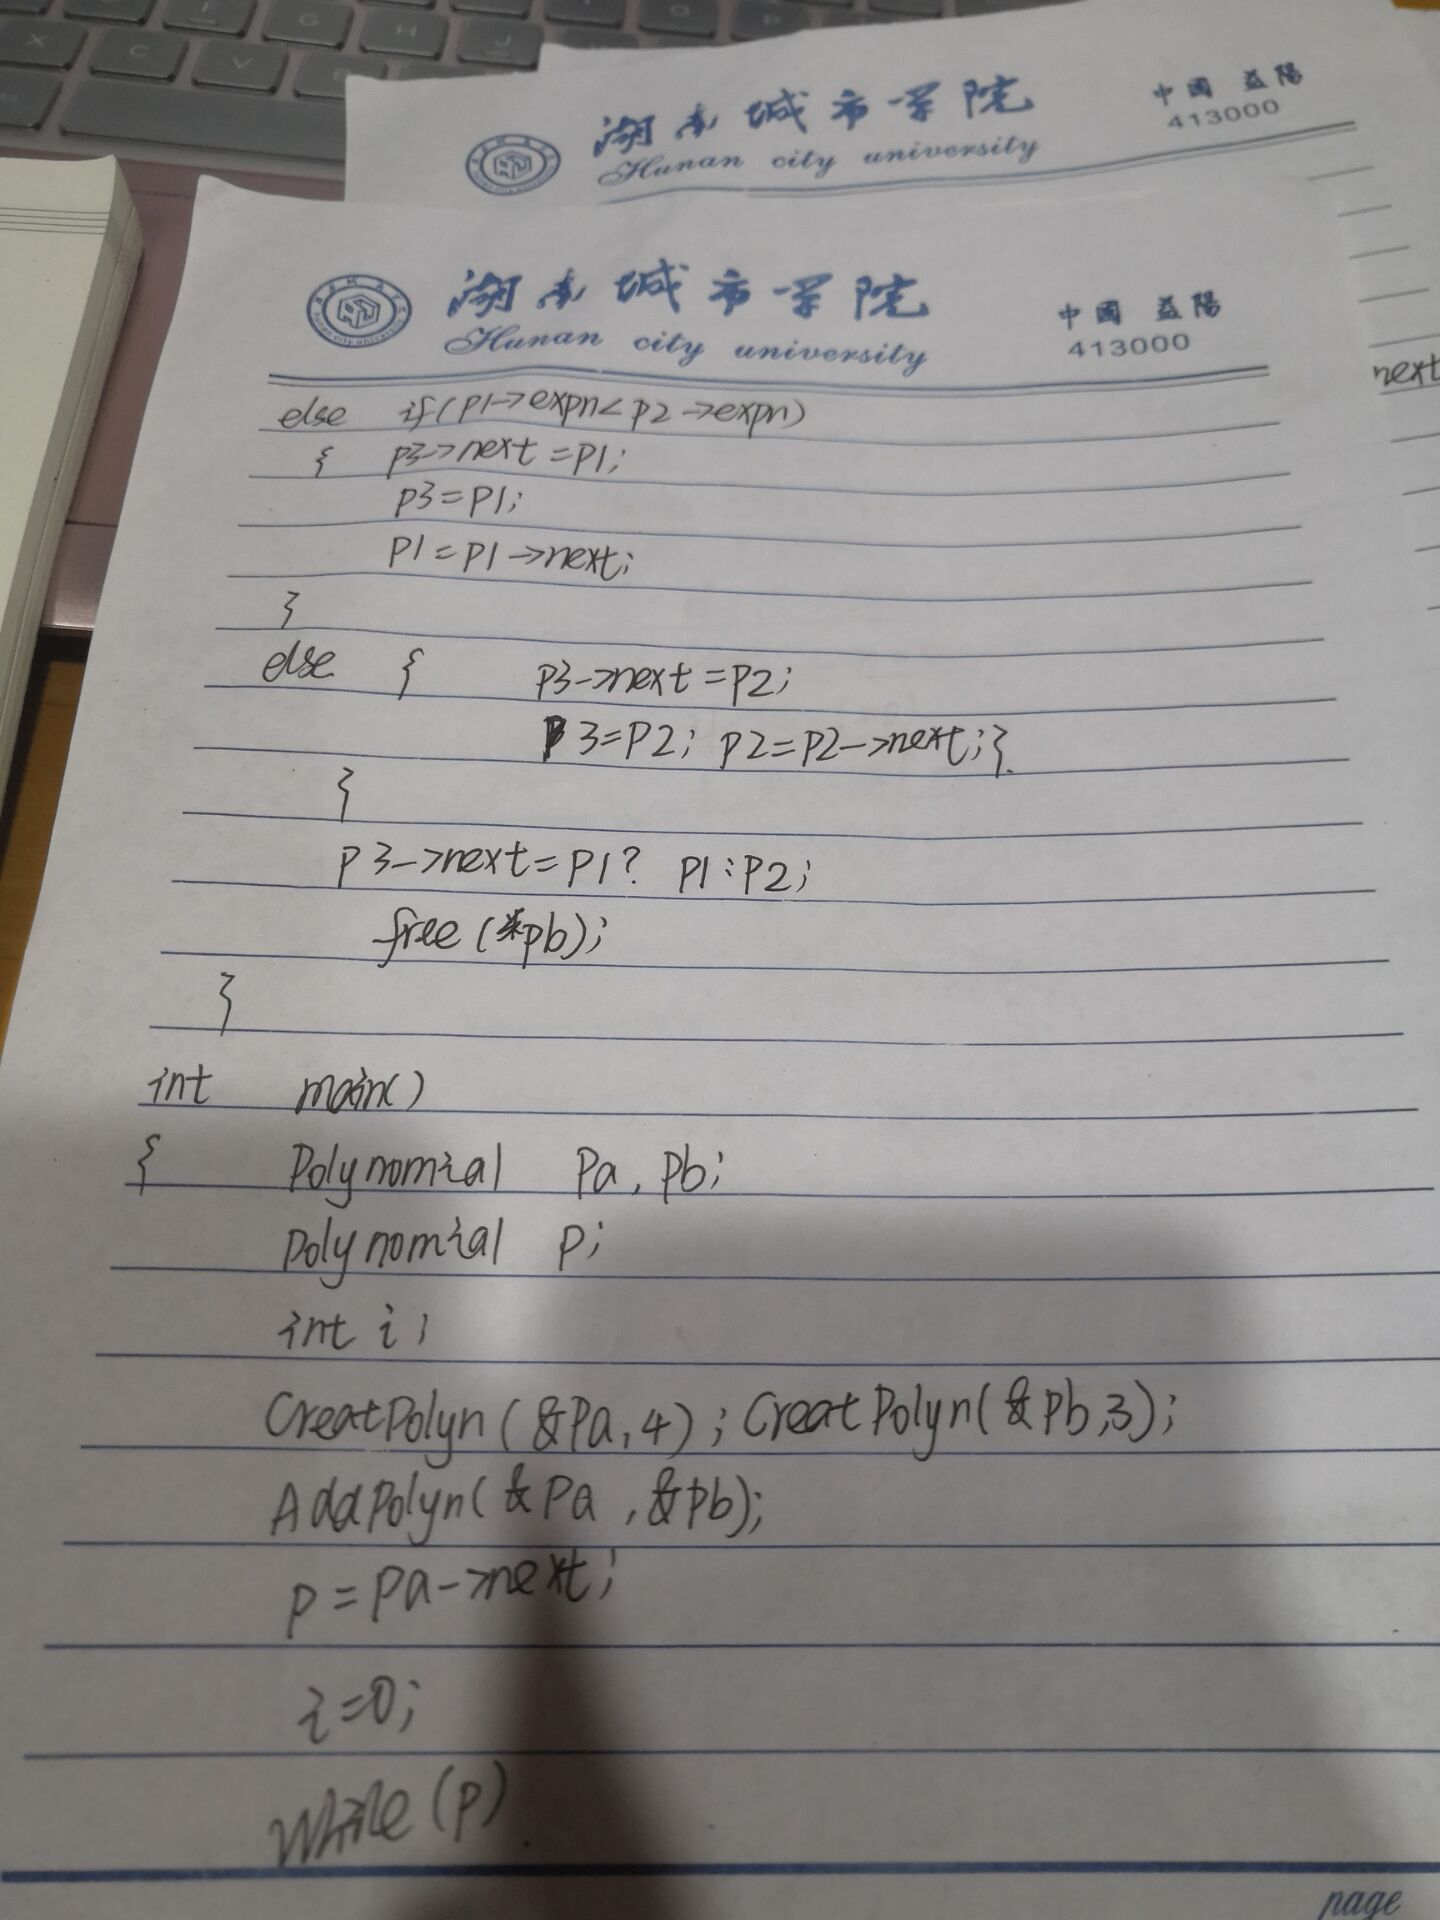 湖南城市学院
Hunan city university
中國 益陽
413000
next
湖南城市学院
Hunan city university
中國 益陽
413000
else if(p1->expn<p2->expn)
{ p3->next=p1;
p3=p1;
p1=p1->next;
}
else { p3->next=p2;
p3=p2; p2=p2->next;}
}
p3->next=p1? p1:p2;
free(*pb);
}
int main()
{ Polynomial Pa, Pb;
Polynomial p;
int i;
CreatPolyn(&Pa,4); CreatPolyn(&Pb,3);
AddPolyn(&Pa,&Pb);
p=Pa->next;
i=0;
while(p)
page